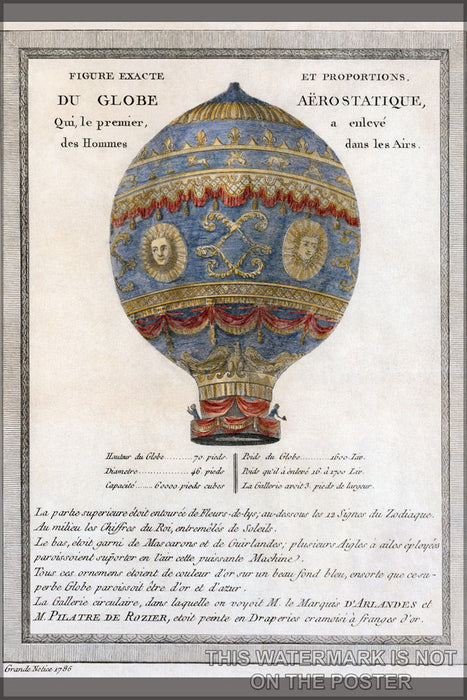 FIGURE EXACTE ET PROPORTIONS.
DU GLOBE AËROSTATIQUE,
Qui, le premier, a enlevé
des Hommes dans les Airs.
Hauteur du Globe............70 pieds. Poids du Globe................1600 Liv.
Diametre................46. pieds Poids qu'il a énlevé 16. à 1700 Liv.
Capacité........60000 pieds cubes La Gallerie avoit 3. pieds de largeur.
La partie superieure étoit entourée de Fleurs-de-lys; au-dessous les 12 Signes du Zodiaque.
Au milieu les Chiffres du Roi, entremêlés de Soleils.
Le bas, étoit garni de Mascarons et de Guirlandes; plusieurs Aigles à ailes éployées
paroissoient suporter en l'air cette puissante Machine?
Tous ces ornemens étoient de couleur d'or sur un beau fond bleu, ensorte que ce su-
perbe Globe paroissoit être d'or et d'azur.
La Gallerie circulaire, dans laquelle on voyoit M. le Marquis D'ARLANDES et
M. PILATRE DE ROZIER, etoit peinte en Draperies cramoisi à franges d'or.
Grande Notice 1786
THIS WATERMARK IS NOT
ON THE POSTER